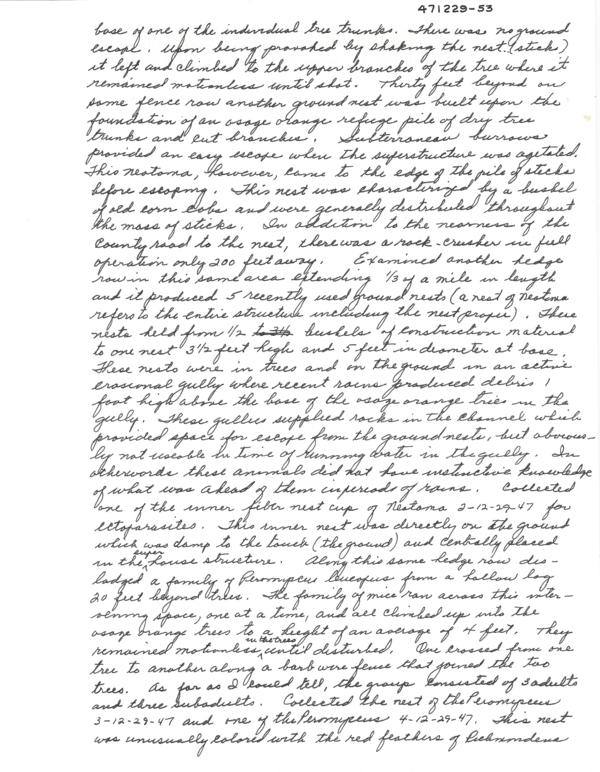 471229-53
base of one of the individual tree trunks. There was no ground
escape. Upon being provoked by shaking the nest (stick)
it left and climbed to the upper branches of the tree where it
remained motionless until shot. Thirty feet beyond on
same fence row another ground nest was built upon the
foundation of an osage orange refuge pile of dry tree
trunks and cut branches. Subterranean burrows
provided an easy escape when the superstructure was agitated.
This Neotoma, however, came to the edge of the pile of sticks
before escaping. This nest was characterized by a bushel
of old corn cobs and were generally distributed throughout
the mass of sticks. In addition to the nearness of the
County road to the nest, there was a rock-crusher in full
operation only 200 feet away. Examined another hedge
row in this same area extending 1/3 of a mile in length
and it produced 5 recently used ground nests (a nest of Neotoma
refers to the entire structure including the nest proper). These
nests held from 1/2 to 3 1/2 bushels of construction material
to one nest 3 1/2 feet high and 5 feet in diameter at base.
These nests were in trees and on the ground in an active
erosional gully where recent rains produced debris 1
foot high above the base of the osage orange trees in the
gully. These gullies supplied rocks in the channel which
provided space for escape from the ground nests, but obvious-
ly not useable in time of running water in the gully. In
otherwords these animals did not have instinctive knowledge
of what was ahead of them in period of rains. Collected
one of the inner fiber nest cup of Neotoma 2-12-29-47 for
ectoparasites. This inner nest was directly on the ground
which was damp to the touch (the ground) and centrally placed
in the super house structure. Along this same hedge row dis-
lodged a family of Peromyscus leucopus from a hollow log
20 feet beyond trees. The family of mice ran across this inter-
vening space, one at a time, and all climbed up into the
osage orange trees to a height of an average of 4 feet. They
remained motionless in the trees until disturbed. One crossed from one
tree to another along a barb wire fense that joined the two
trees. As far as I could tell, the group consisted of 3 adults
and three subadults. Collected the nest of the Peromyscus
3-12-29-47 and one of the Peromyscus 4-12-29-47. This nest
was unusually colored with the red feathers of Richmondena